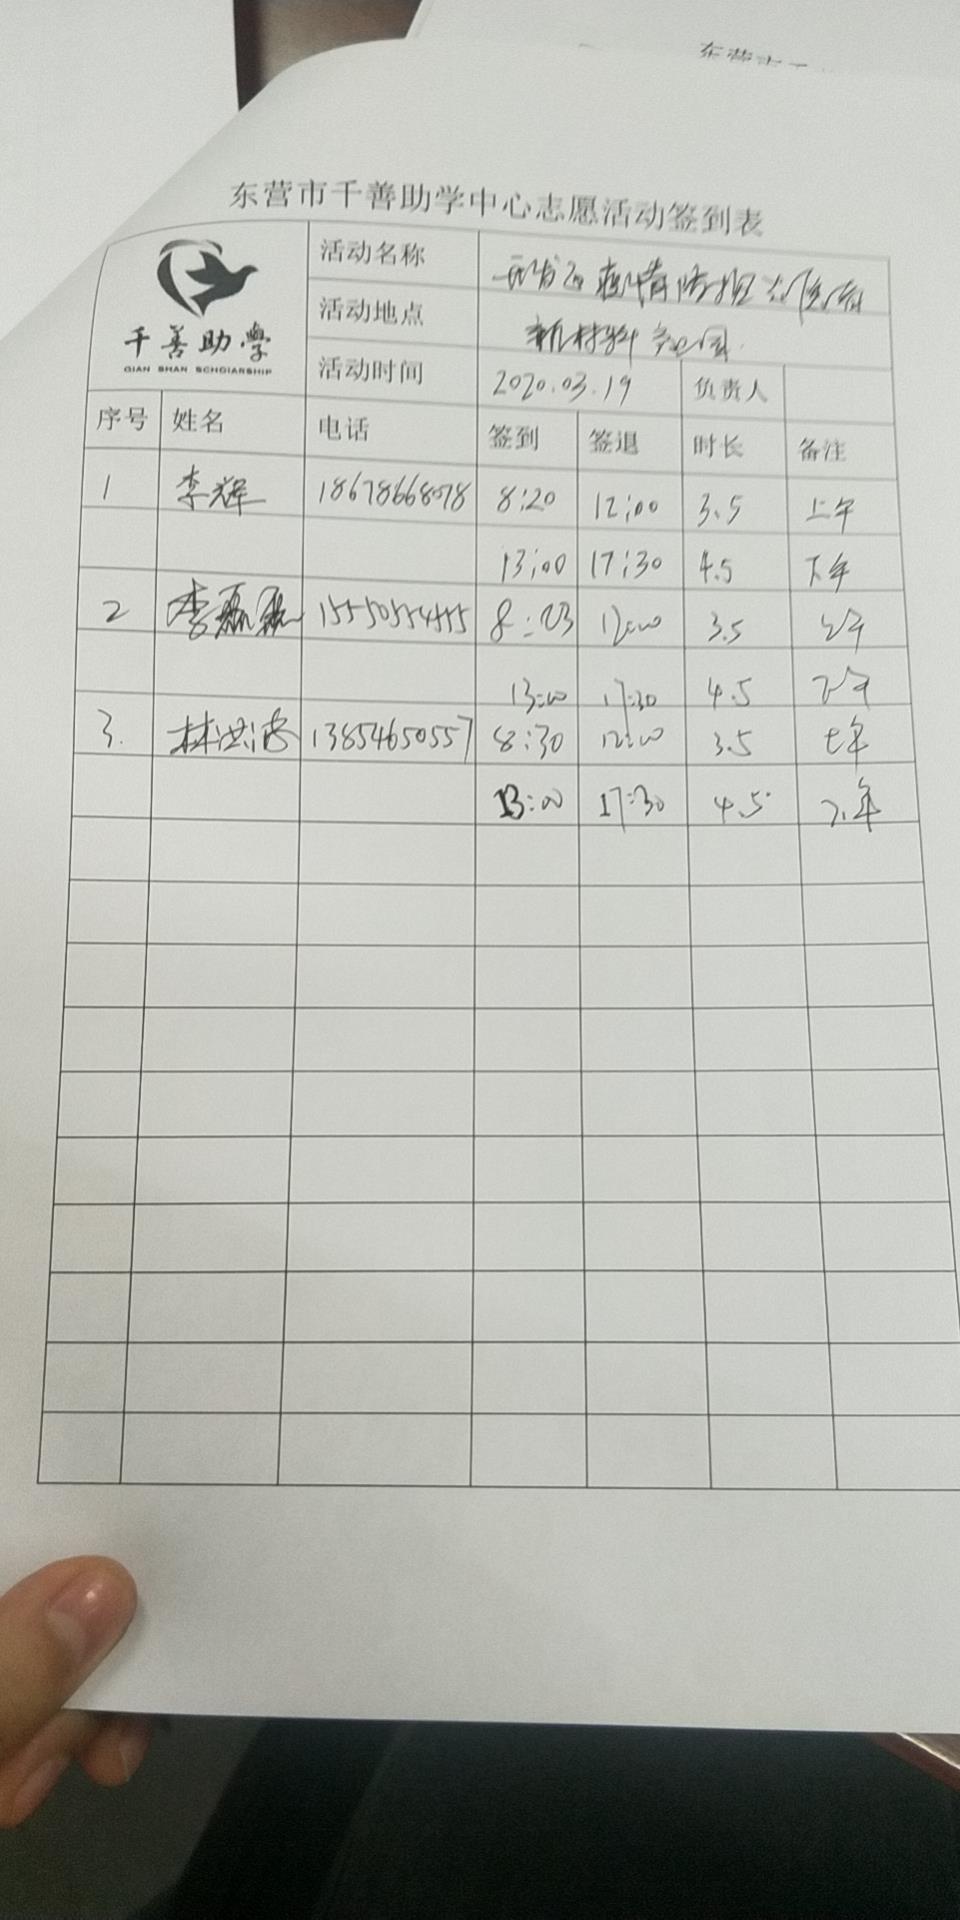 东营市千
东营市千善助学中心志愿活动签到表
千善助学
QIAN SHAN SCHOIARSHIP
活动名称 开发区疫情防控
活动地点 新材料产业园
活动时间 2020.03.19 负责人
序号 姓名 电话 签到 签退 时长 备注
1 李辉 18678668078 8:20 12:00 3.5 上午
13:00 17:30 4.5 下午
2 李磊磊 15550554455 8:23 12:00 3.5 上午
13:00 17:30 4.5 下午
3. 林洪涛 13854650557 8:30 12:00 3.5 上午
13:00 17:30 4.5 下午